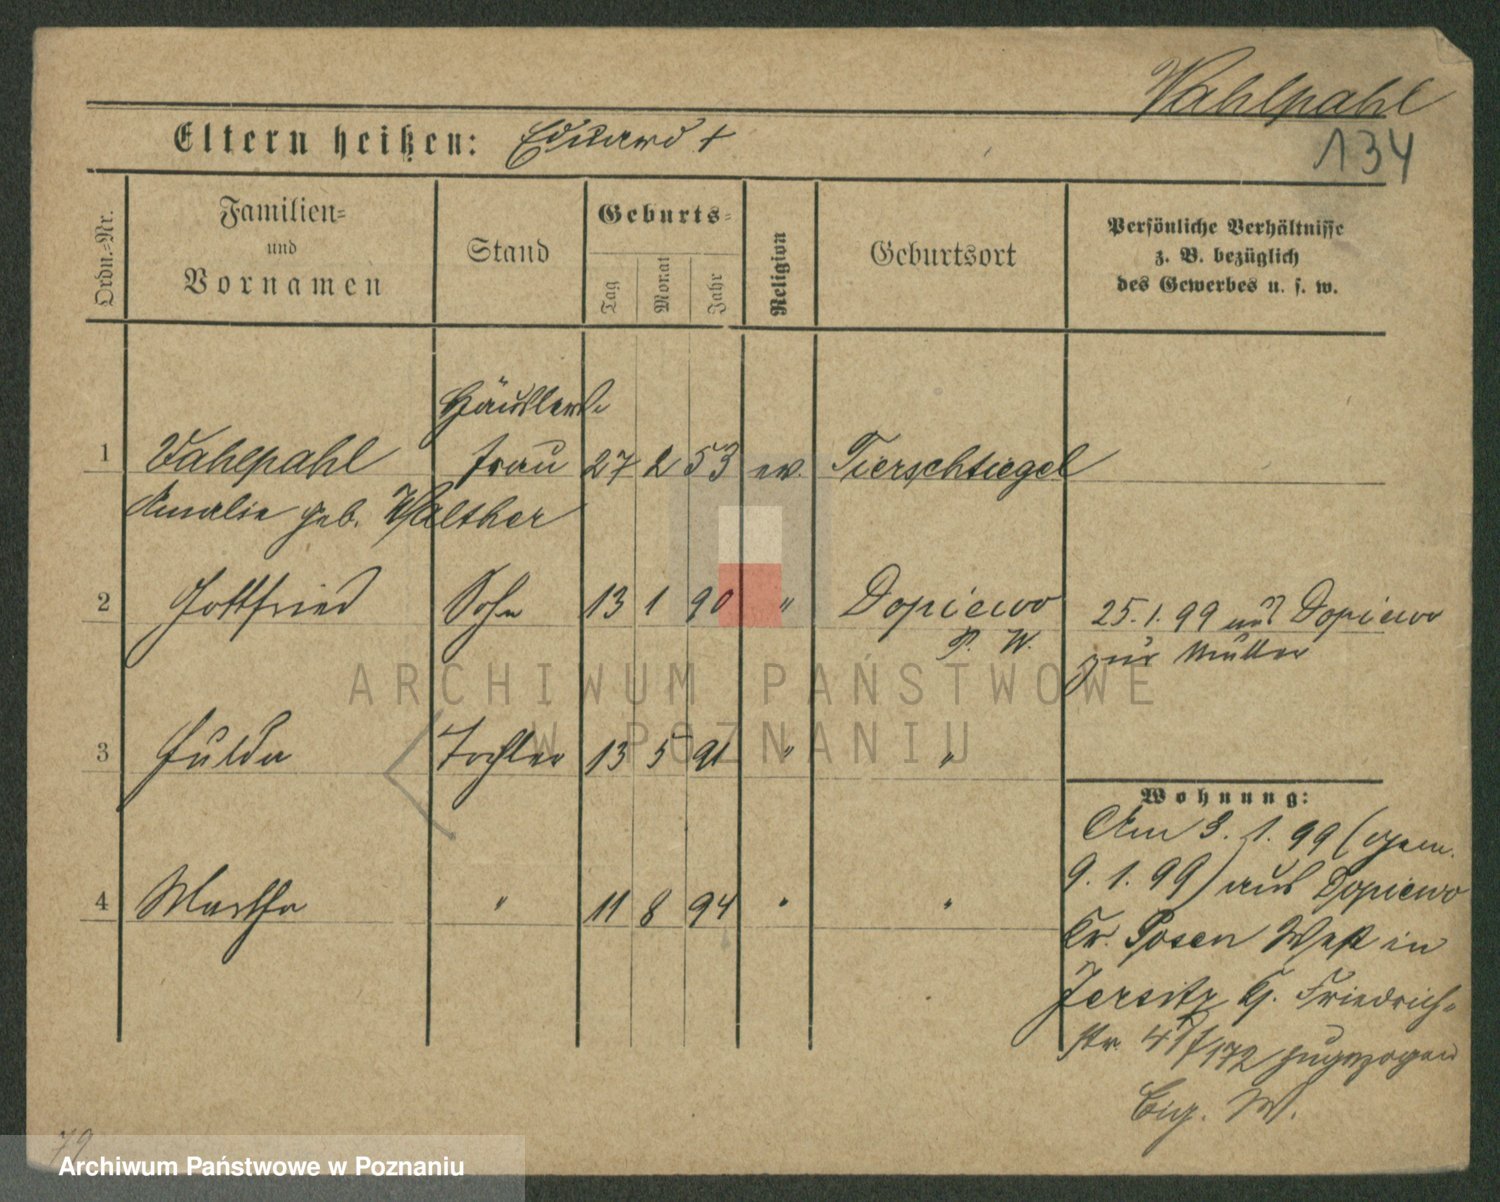 Vahlpahl
134
Eltern heißen: Eduard +
Ordn.-Nr.
Familien-
und
Vornamen
Stand
Geburts-
Tag
Monat
Jahr
Religion
Geburtsort
Persönliche Verhältnisse
z. B. bezüglich
des Gewerbes u. s. w.
Häusler-
1 Vahlpahl frau 27 2 53 ev. Tierschtiegel
Amalie geb. Walther
2 Gottfried Sohn 13 1 90 " Dopiewo
P. W.
25.1.99 aus Dopiewo
zur Mutter
3 Hulda Tochter 13 5 91 " "
4 Martha " 11 8 94 " "
Wohnung:
Am 3. 1. 99 (gem.
9. 1. 99) aus Dopiewo
Kr. Posen West in
Jersitz Friedrich-
str. zugezogen
W.
79
ARCHIWUM PAŃSTWOWE
W POZNANIU
Archiwum Państwowe w Poznaniu